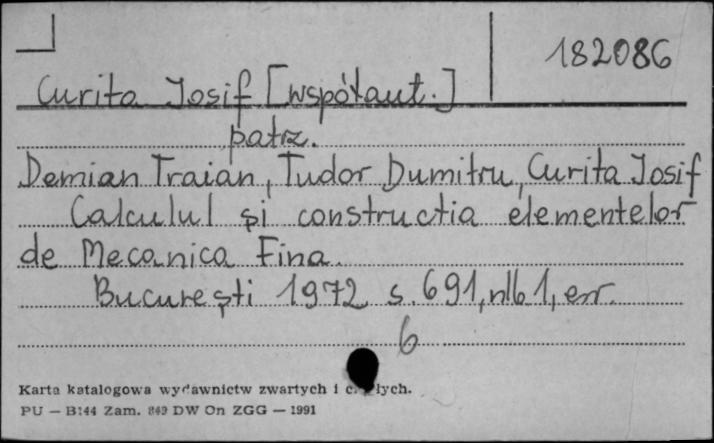 182086
Curita Iosif [współaut.]
patrz.
Demian Traian, Tudor Dumitru, Curita Iosif
Calculul şi constructia elementelor
de Mecanica Fina.
Bucureşti 1972 s. 691, nlb 1, err.
6
Karta katalogowa wydawnictw zwartych i
PU — B144 Zam. 849 DW On ZGG — 1991